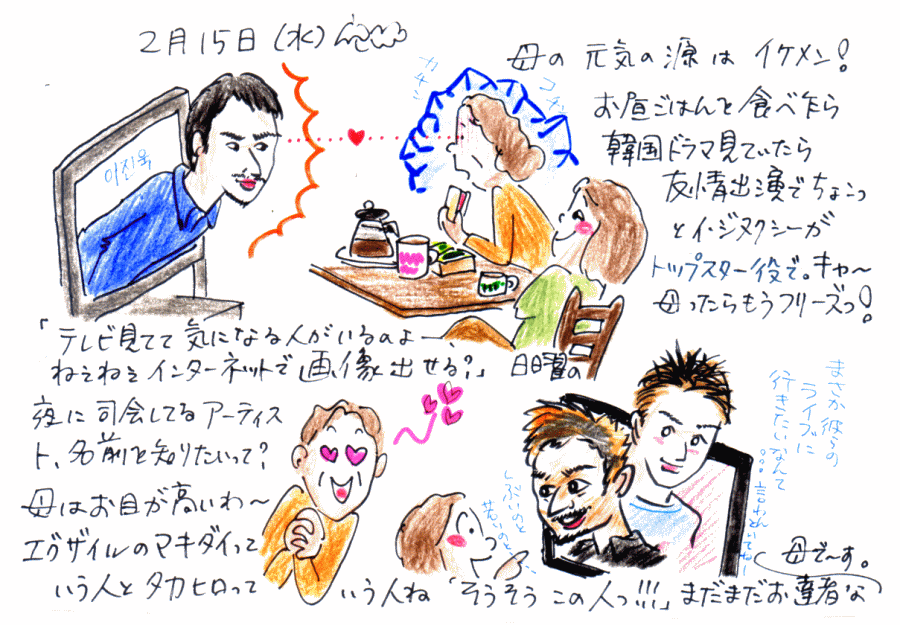 2月15日(水)
母の 元気の源は イケメン!
お昼ごはんを食べ乍ら
韓国ドラマ見ていたら
友情出演でちょこっ
とイ・ジヌクシーが
トップスター役で。キャ〜
母ったらもうフリーズっ!
カチン
コチン
이진욱
「テレビ見てて気になる人がいるのよー、
ねえねえインターネットで画像出せる?」日曜の
夜に司会してるアーティス
ト、名前を知りたいって?
母はお目が高いわ〜
エグザイルのマキダイって
いう人とタカヒロって
いう人ね「そうそうこの人っ!!!」まだまだお達者な
母で〜す。
しぶいのと
若いのと、
まさか彼らの
ライブに
行きたいなんて